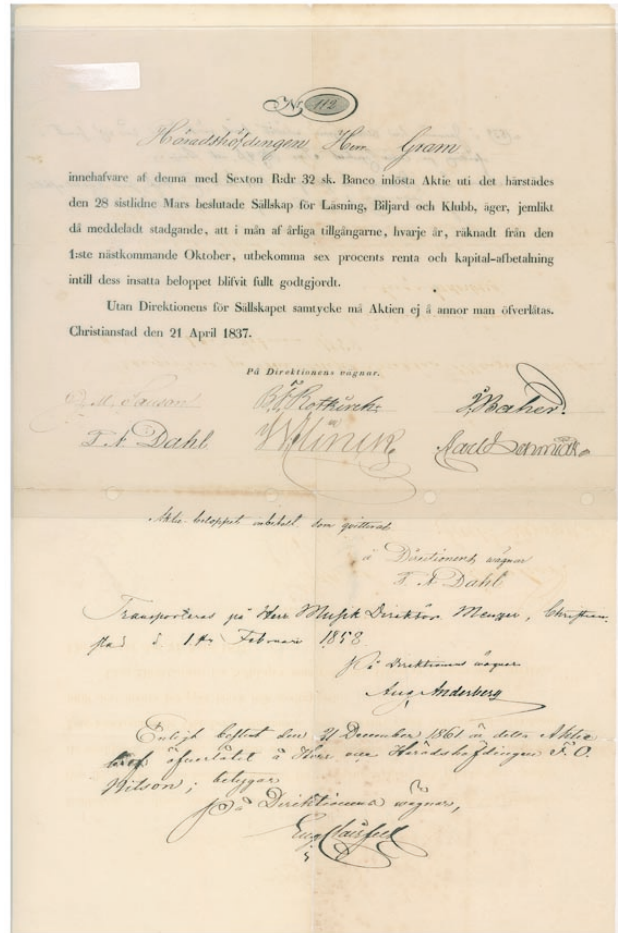 Nr 112
Häradshöfdingen Herr Gram
innehafvare af denna med Sexton R:dr 32 sk. Banco inlösta Aktie uti det härstädes
den 28 sistlidne Mars beslutade Sällskap för Läsning, Biljard och Klubb, äger, jemlikt
då meddeladt stadgande, att i mån af årliga tillgångarne, hvarje år, räknadt från den
1:ste nästkommande Oktober, utbekomma sex procents renta och kapital-afbetalning
intill dess insatta beloppet blifvit fullt godtgjordt.
Utan Direktionens för Sällskapet samtycke må Aktien ej å annor man öfverlåtas.
Christianstad den 21 April 1837.
På Direktionens vägnar.
T. A. Dahl
Aktie-beloppet inbetalt som qvitteras
å Directionens wägnar
T. A. Dahl
Transporteras på Herr Musik Direktör Menzer, Christian-
stad d. 1 Februari 1858
På Direktionens wägnar
Aug. Anderberg
Enligt beslut den 21 December 1861 är detta Aktie
bref öfverlåtet å Herr vice Häradshöfdingen F. O.
Nilson; betygar
På Direktionens wägnar,